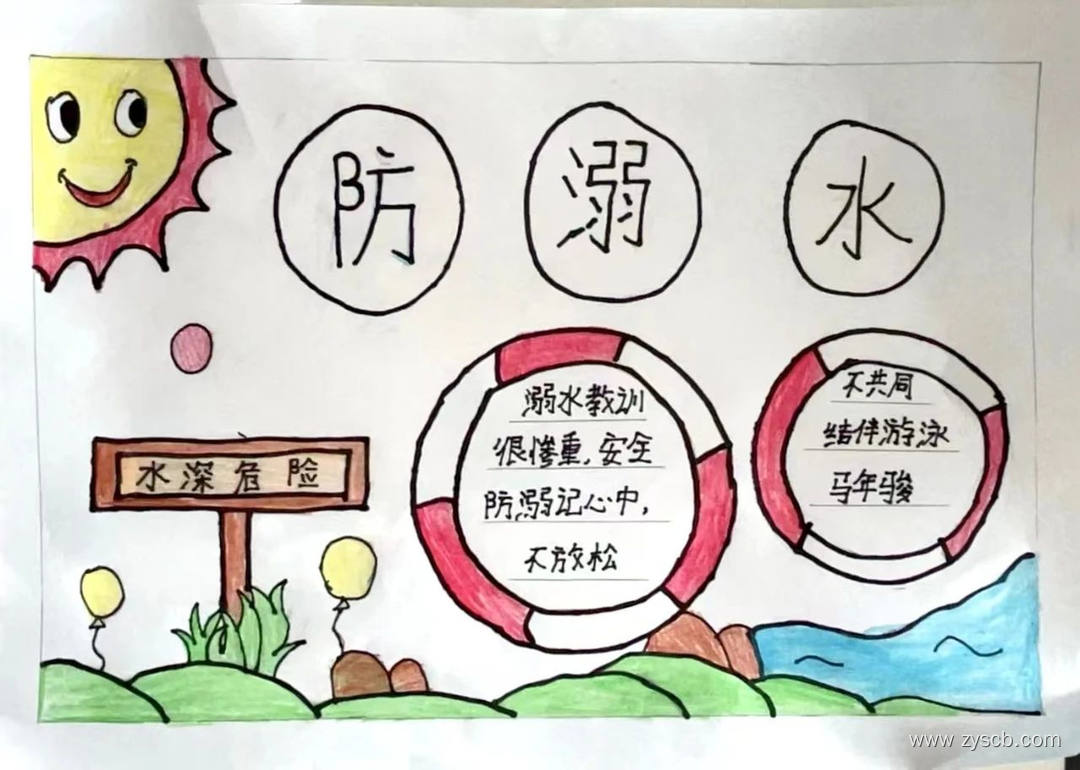 防溺水
水深危险
溺水教训
很惨重,安全
防溺记心中,
不放松
不共同
结伴游泳
马年骏
www.zyscb.com